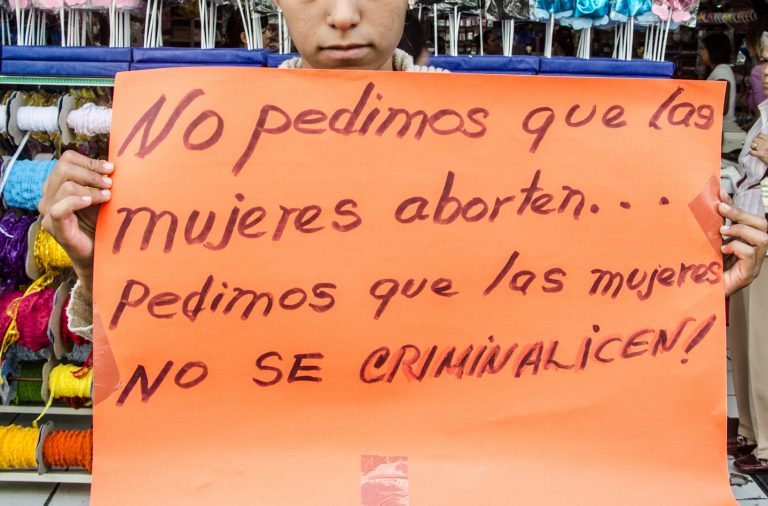 No pedimos que las
mujeres aborten...
Pedimos que las mujeres
NO SE CRIMINALICEN!